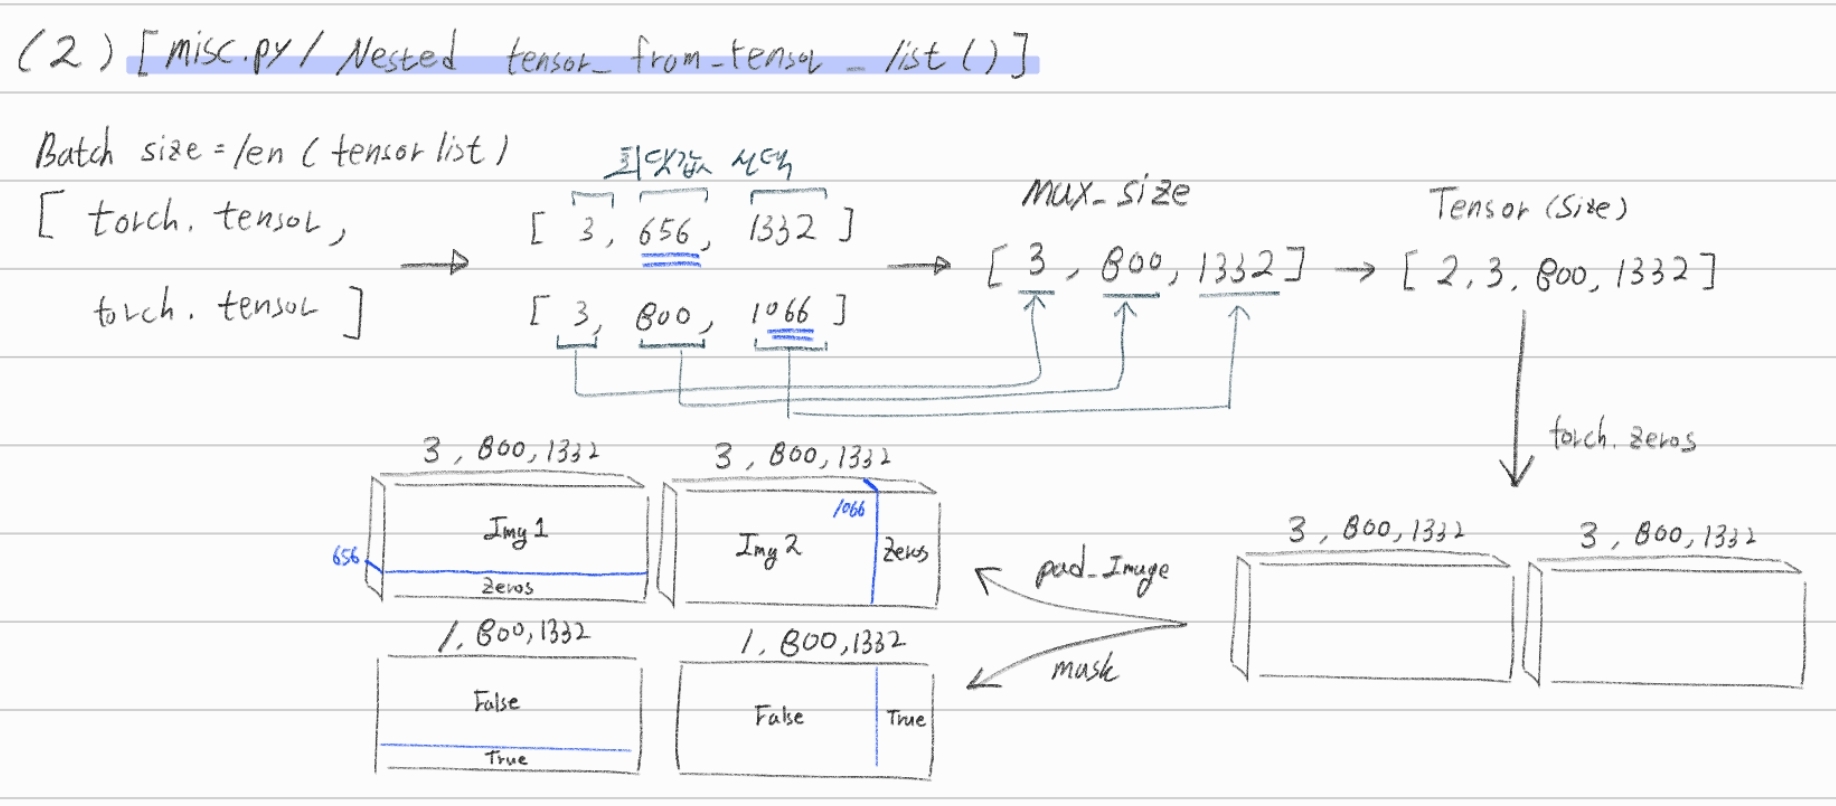 (2) [misc.py / Nested tensor_from_tensor_list()]
Batch size = len (tensor list)
[ torch. tensor,
torch. tensor ]
최댓값 선택
[ 3, 656, 1332 ]
[ 3, 800, 1066 ]
max_size
[ 3, 800, 1332 ]
Tensor (Size)
[ 2, 3, 800, 1332 ]
torch. zeros
3, 800, 1332
3, 800, 1332
pad_Image
mask
3, 800, 1332
Img 1
656
Zeros
3, 800, 1332
1066
Img 2
Zeros
1, 800, 1332
False
True
1, 800, 1332
False
True